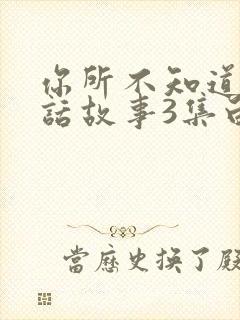 你所不知道
話故事3集
當歷史換了